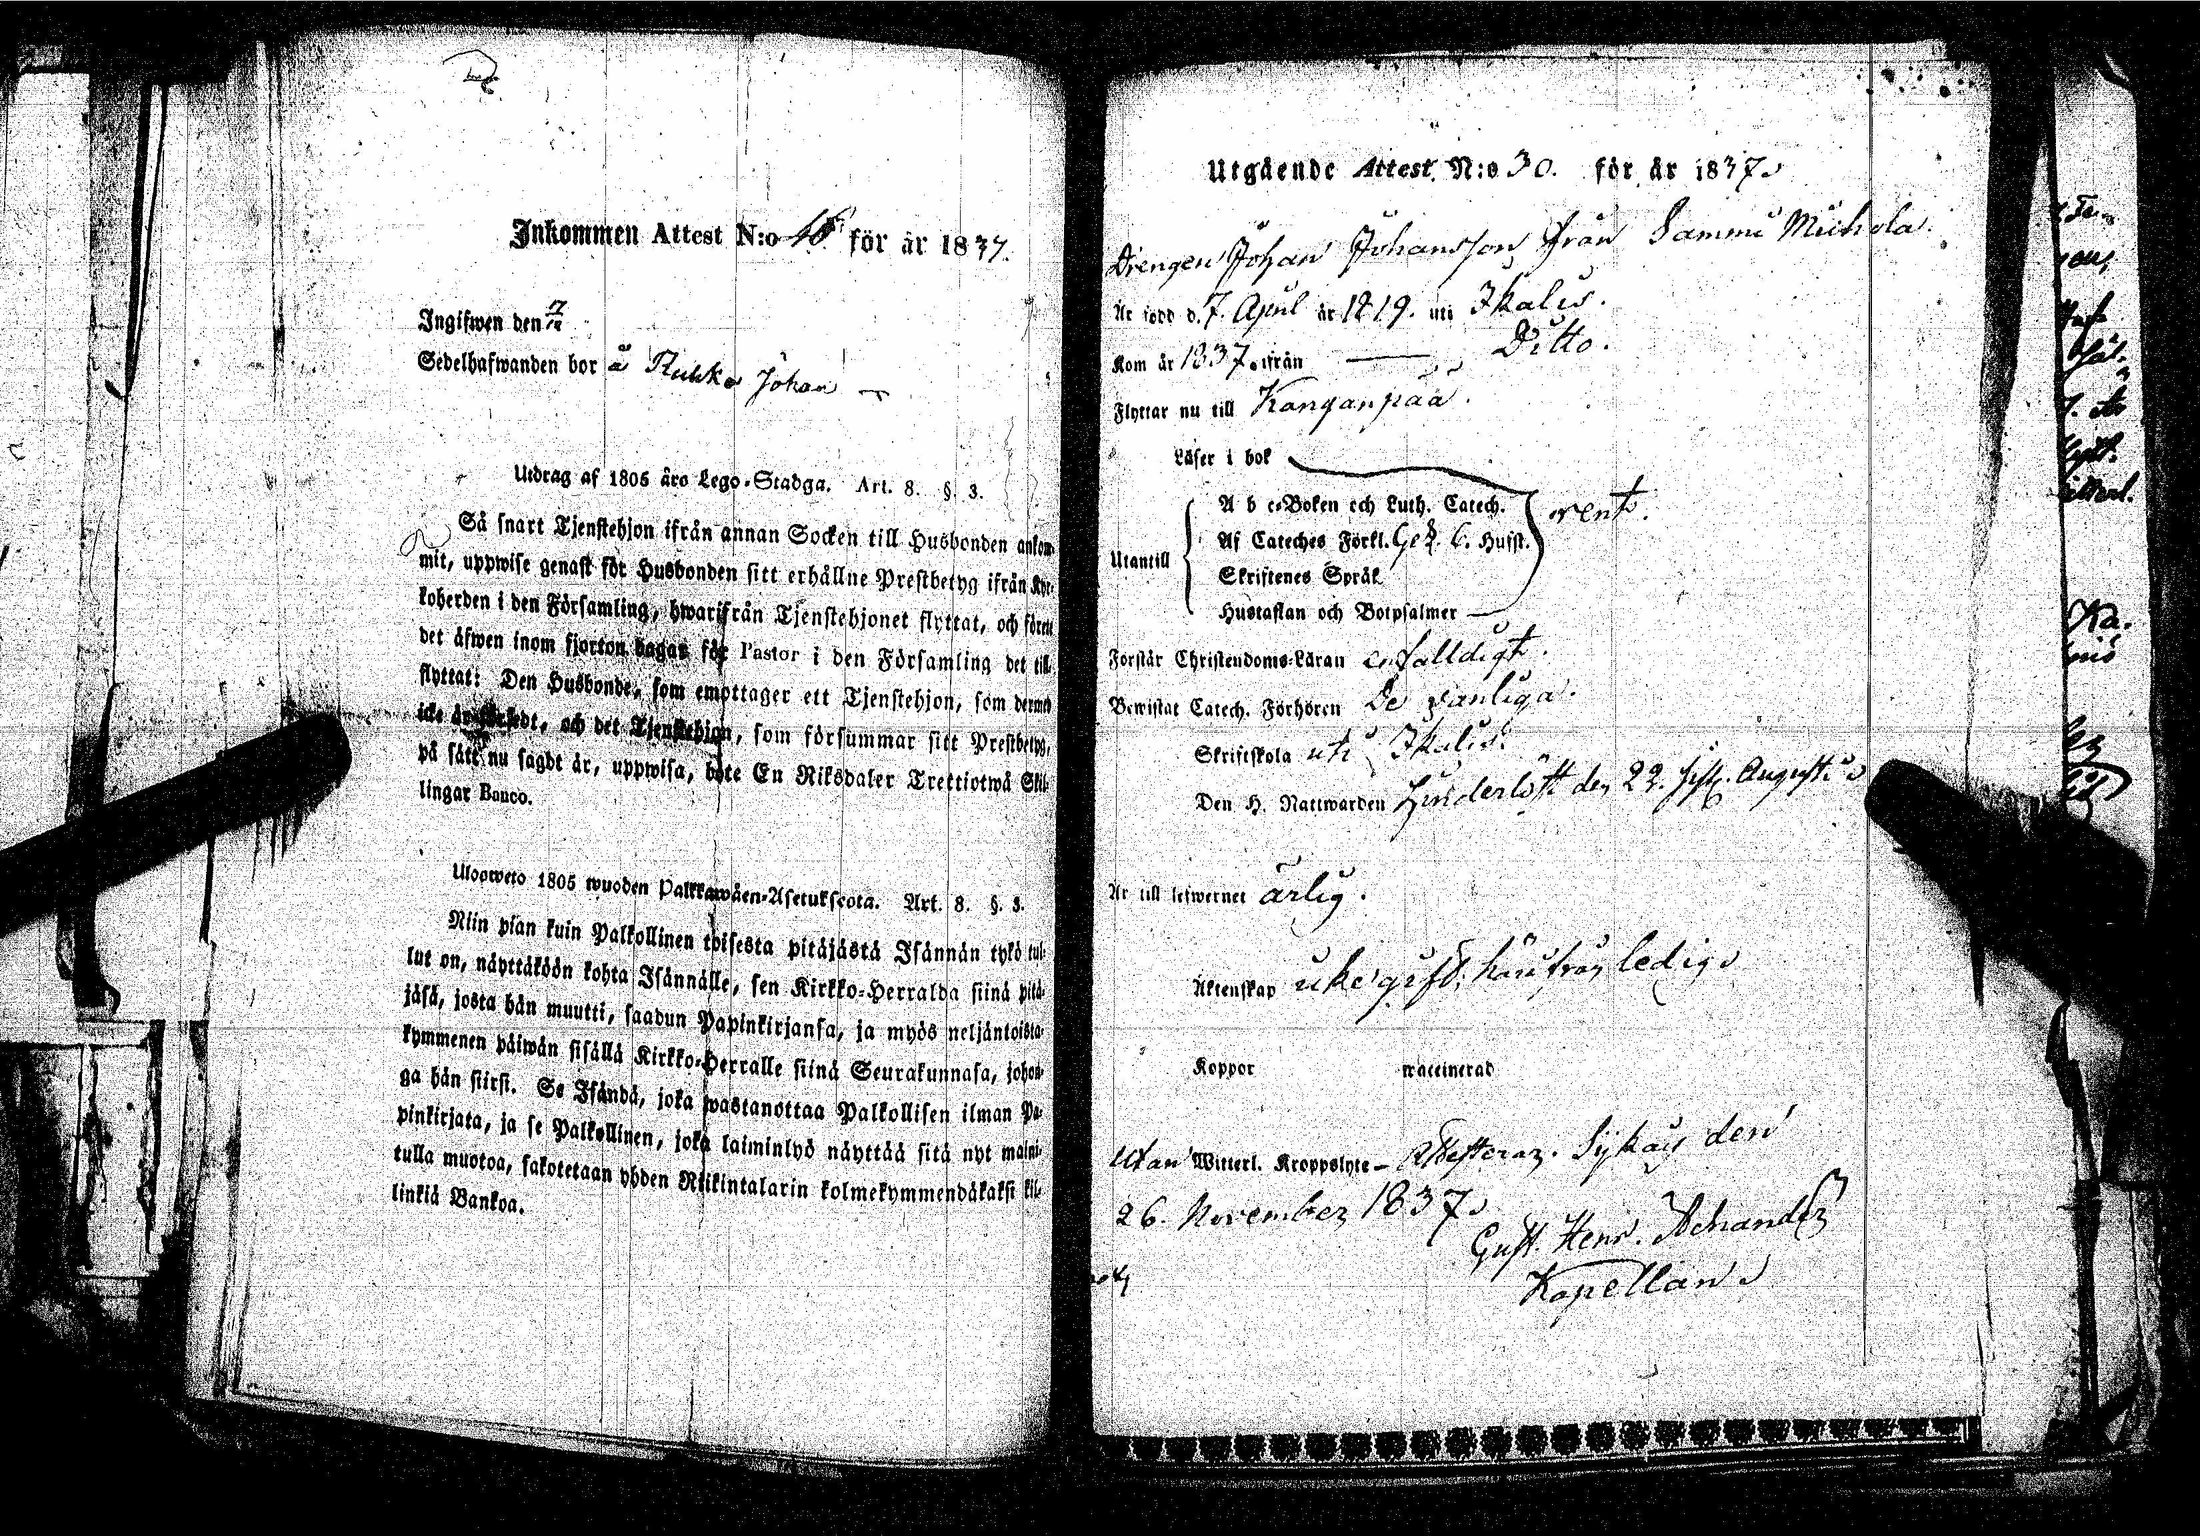 Inkommen Attest N:o för år 1837.
Ingifwen den 7/12
Sedelhafwanden bor å Johan
Utdrag af 1805 års Lego-Stadga. Art. 8. §. 3.
Så snart Tjenstehjon ifrån annan Socken till Husbonden ankom-
mit, uppwise genast för Husbonden sitt erhållne Prestbetyg ifrån Kyr-
koherden i den Församling, hwarifrån Tjenstehjonet flyttat, och förete
det äfwen inom fjorton dagar för Pastor i den Församling det till-
flyttat: Den Husbonde, som emottager ett Tjenstehjon, som dermed
icke är försedt, och det Tjenstehjon, som försummar sitt Prestbetyg,
på sätt nu sagdt är, uppwisa, böte En Riksdaler Trettiotwå Skil-
lingar Banco.
Ulosweto 1805 wuoden Palkkawäen-Asetuksesta. Art. 8. §. 3.
Niin pian kuin Palkollinen toisesta pitäjästä Isännän tykö tul-
lut on, näyttäköön kohta Isännälle, sen Kirkko-Herralda siinä pitä-
jäsä, josta hän muutti, saadun Papinkirjansa, ja myös neljäntoista-
kymmenen päiwän sisällä Kirkko-Herralle siinä Seurakunnasa, johon-
ga hän siirsi. Se Isändä, joka wastanottaa Palkollisen ilman Pa-
pinkirjata, ja se Palkollinen, joka laiminlyö näyttää sitä nyt maini-
tulla muotoa, sakotetaan yhden Riikintalarin kolmekymmendäkaksi kil-
linkiä Bankoa.
Utgående Attest. N:o 30. för år 1837.
Drengen Johan Johansson från Sammi
Är född d. 7. April år 1819. uti Ikalis.
Kom år 1837. ifrån — Ditto.
Flyttar nu till Kanganpää.
Läser i bok
A b c-Boken och Luth. Catech.
rent.
Af Cateches Förkl. 6. Husst.
Utantill
Skriftenes Språk
Hustaflan och Botpsalmer
Förstår Christendoms-Läran enfaldigt.
Bewistat Catech. Förhören De vanliga.
Skriftskola uti Ikalis.
Den H. Nattwarden den 22. Augusti
Är till lefwernet ärlig.
Äktenskap ledig
Koppor waccinerad
Utan Witterl. Kroppslyte — den
26. November 1837.
Gust. Henr.
Kapellan